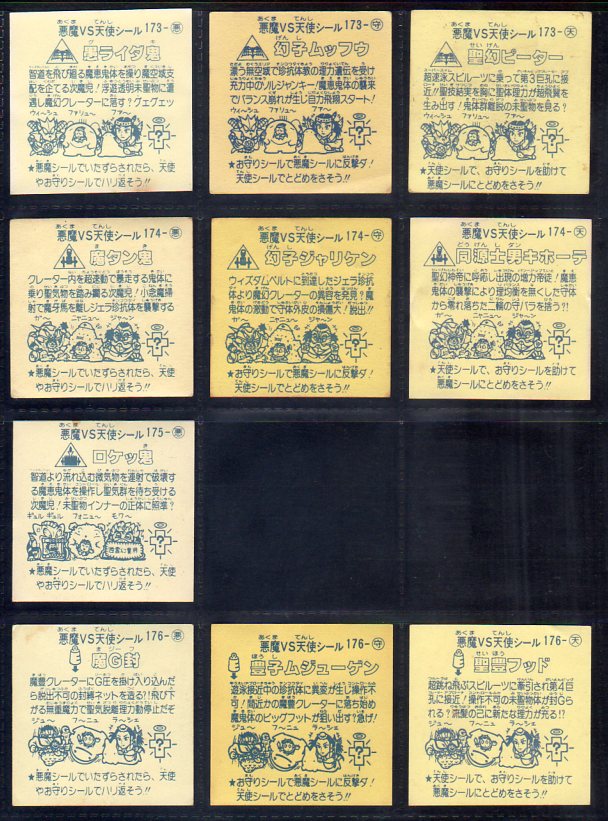 悪魔VSてんしシール 173-悪
悪ライダ鬼
智道を飛び廻る魔恵鬼体を操り魔空域支
配を企てる次魔児!浮遊透明未聖物に遭
遇し魔幻クレーターに落す?グェグェッ
ウィ〜シュ ファリュ〜 ファ〜
★悪魔シールでいたずらされたら、天使
やお守りシールでハリ返そう!!
悪魔VS天使シール 173-守
幻子ムッフウ
漂う無空域で珍抗体教の理力遺伝を受け
充力中のノルジャンキー!魔恵鬼体の襲来
でバランス崩れが生じ目力飛翔スタート!
ウィ〜シュ ファリュ〜 ファ〜
★お守りシールで悪魔シールに反撃ダ!
天使シールでとどめをさそう!!
悪魔VS天使シール 173-天
聖幻ピーター
超速泳スピルーツに乗って第3巨孔に接
近!聖技超実を胸に聖体理力が超飛翼を
生み出す!鬼体群離脱の未聖物を見る?
ウィ〜シュ ファリュ〜 ファ〜
★天使シールで、お守りシールを助けて
悪魔シールにとどめをさそう!!
悪魔VS天使シール 174-悪
魔タン鬼
クレーター内を超速動で暴走する鬼体に
乗り聖気物を踏み躙る次魔児!小惑魔掃
射で魔牙馬を離しジェラ珍抗体を襲撃する
ガ〜ン ニャニュ〜 ジャ〜ン
★悪魔シールでいたずらされたら、天使
やお守りシールでハリ返そう!!
悪魔VS天使シール 174-守
幻子ジャリケン
ウィズダムベルトに到達したジェラ珍抗
体より魔幻クレーターの異容を発見?魔
鬼体の激動で守体外皮の損傷大!脱出!!
ガ〜ン ニャニュ〜 ジャ〜ン
★お守りシールで悪魔シールに反撃ダ!
天使シールでとどめをさそう!!
悪魔VS天使シール 174-天
同源士男キホーテ
聖幻神帝に呼応し出現の増力帝徒!魔恵
鬼体の襲撃により理均衡を無くした守体
から零れ落ちた二輪の守バラを捨う?!
ガ〜ン ニャニュ〜 ジャ〜ン
★天使シールで、お守りシールを助けて
悪魔シールにとどめをさそう!!
悪魔VS天使シール 175-悪
ロケッ鬼
智道より流れ込む微気物を連射で破壊す
る魔恵鬼体を操作し聖気群を待ち受ける
次魔児!未聖物インナーの正体に照準?
ギョル ギョル フォニュ〜 モワ〜
★悪魔シールでいたずらされたら、天使
やお守りシールでハリ返そう!!
悪魔VS天使シール 176-悪
魔G封
魔豊クレーターにG圧を掛け入り込んだ
ら脱出不可の封縛ネットを造る?!飛び下
がる無重魔力で聖気説離理力動停止だぞ
ジュ〜 フ〜ニュ ラ〜シェ
★悪魔シールでいたずらされたら、天使
やお守りシールでハリ返そう!!
悪魔VS天使シール 176-守
豊子ムジューゲン
遊泳接近中の珍抗体に異変が生じ操作不
可!間近かの魔豊クレーターに落ち始め
魔鬼体のビッグフットが狙い出す?急げ!
ジュ〜 フ〜ニュ ラ〜シェ
★お守りシールで悪魔シールに反撃ダ!
天使シールでとどめをさそう!!
悪魔VS天使シール 176-天
聖豊フッド
超跳ね飛ぶスピルーツに牽引され第4巨
孔に接近!操作不可の未聖物体が封Gら
れる?流髪の己に新たな理力が充る!?
ジュ〜 フ〜ニュ ラ〜シェ
★天使シールで、お守りシールを助けて
悪魔シールにとどめをさそう!!